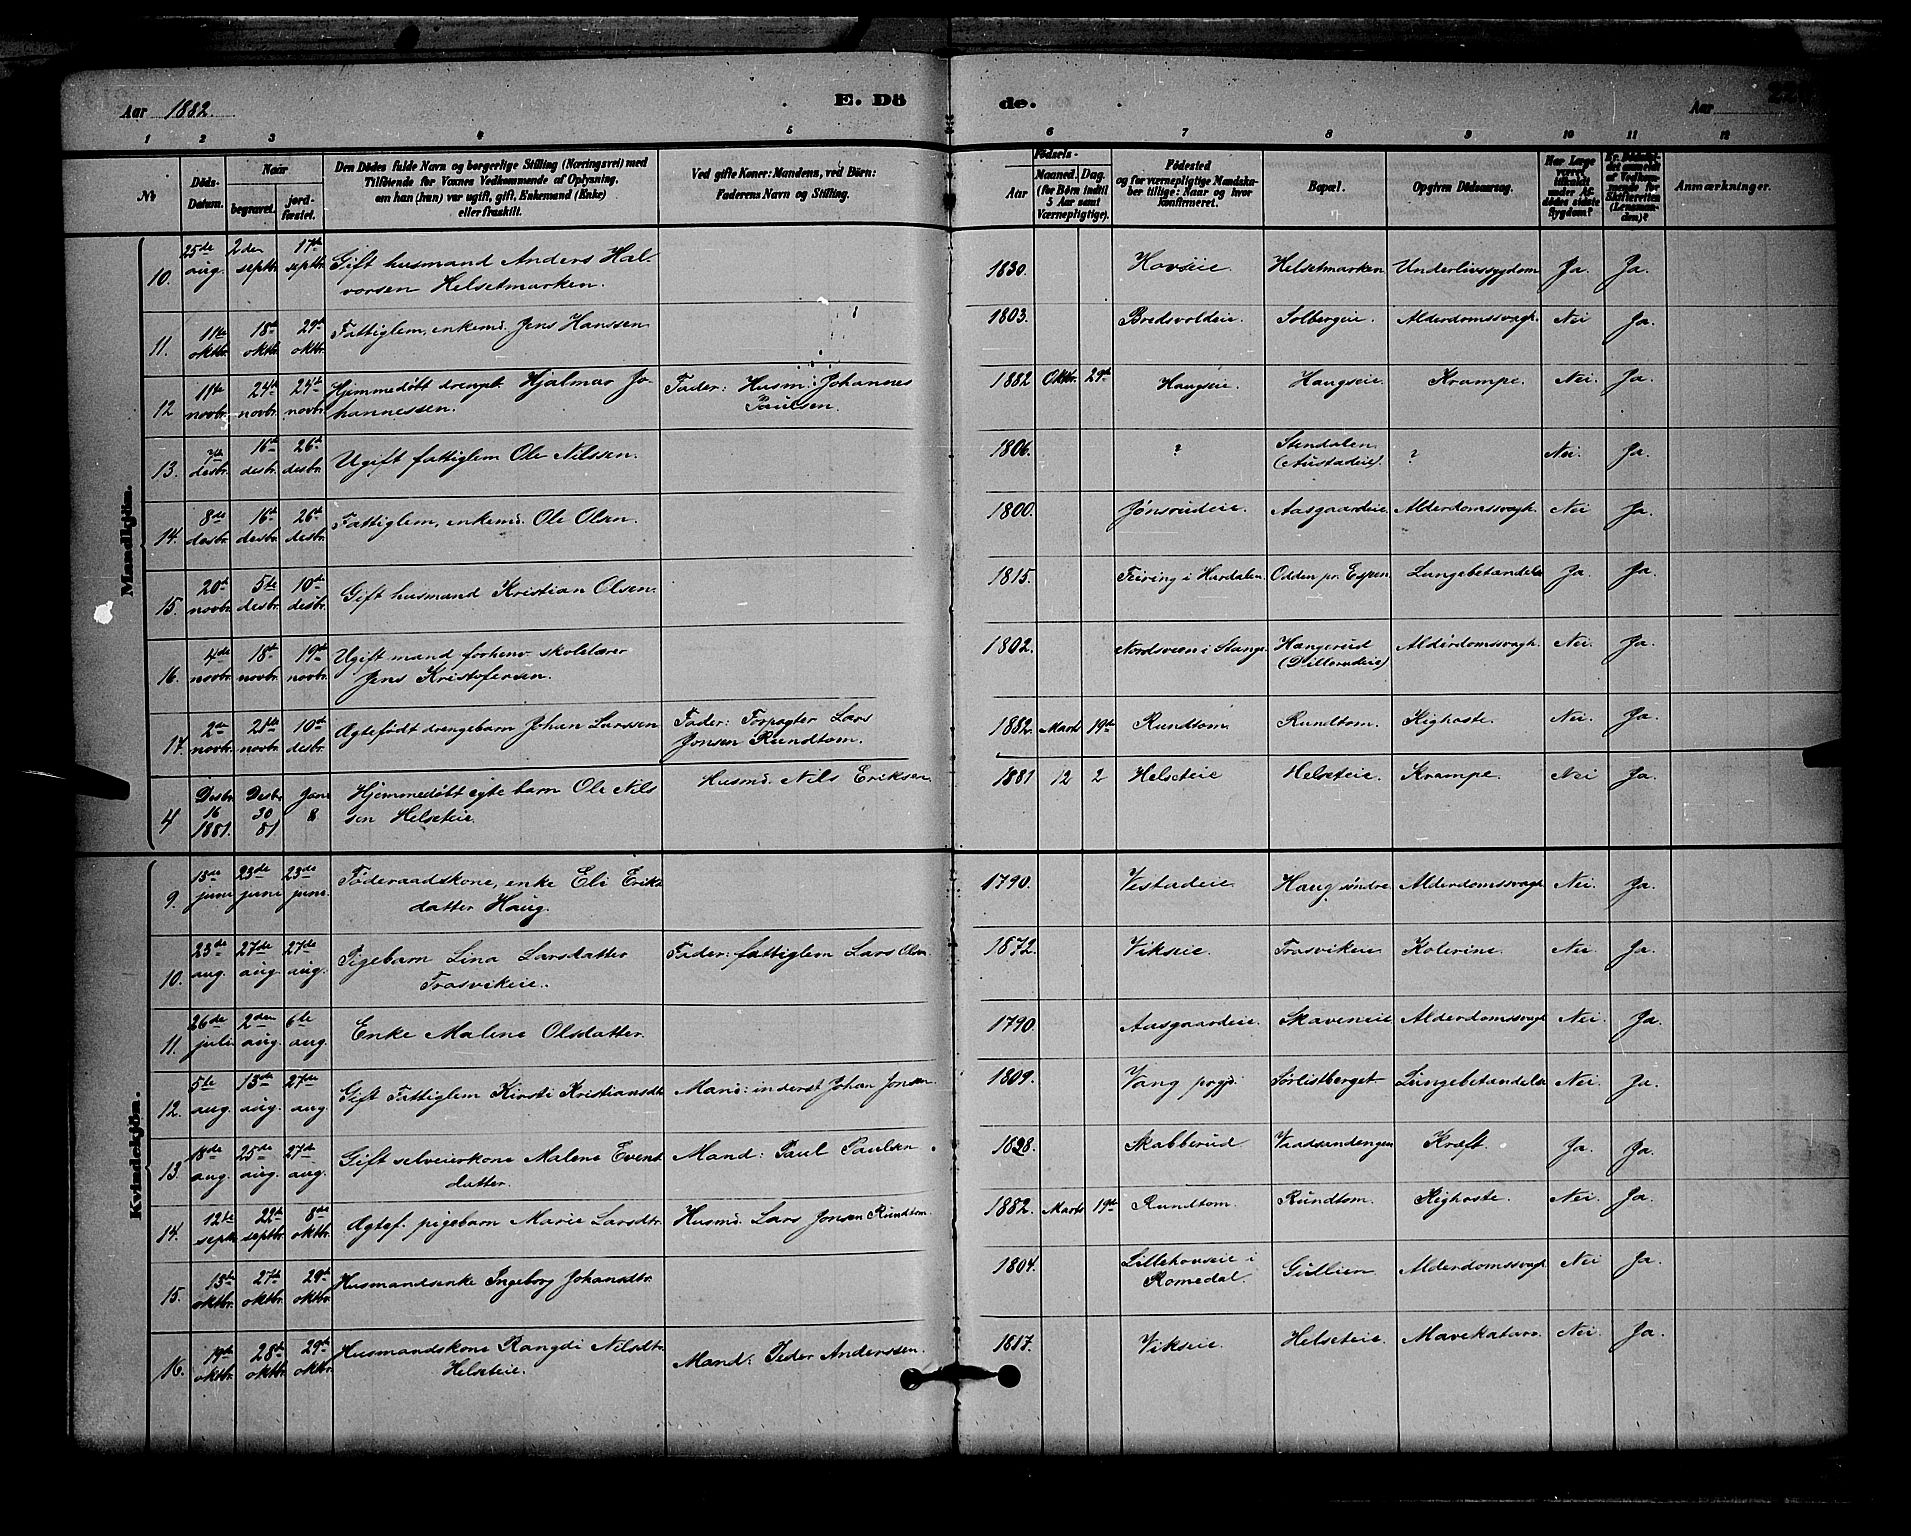 Aar 1882. E. Dö de. Aar
1 2 3 4 5 6 7 8 9 10 11 12
№ Döds-Datum. Naar begravet. jordfæstet. Den Dødes fulde Navn og borgerlige Stilling (Næringsvei) med Tilföiende for Voxnes Vedkommende af Oplysning, om han (hun) var ugift, gift, Enkemand (Enke) eller fraskilt. Ved gifte Koner: Mandens, ved Börn: Faderens Navn og Stilling. Födsels- Aar Maaned. Dag. (for Börn indtil 5 Aar samt Værnepligtige). Födested og for værnepligtige Mandskaber tillige: Naar og hvor konfirmeret. Bopæl. Opgiven Dödsaarsag. Har Læge været tilkaldt under Afdödes sidste Sygdom? Er Dödsfaldet anmeldt af Vedkommende for Skifteretten (Lensmanden)? Anmærkninger.
Mandkjön.
10. 25de aug. 2den septbr. 17de septbr. Gift husmand Anders Halvorsen Helsetmarken. 1830. Hovseie. Helsetmarken Underlivssygdom Ja. Ja.
11. 11te oktbr. 18de oktbr. 29de oktbr. Fattiglem, enkemd. Jens Hanssen 1803. Bredsvoldeie. Solbergeie. Alderdomssvagh. Nei Ja.
12 11te novbr. 24de novbr. 24de novbr. Hjemmedøbt drengeb. Hjalmar Johannessen. Fader: Husm: Johannes Paulsen. 1882 Oktbr. 29de Haugseie. Haugseie. Krampe. Nei. Ja.
13. 7de desbr. 16de desbr. 26de desbr. Ugift fattiglem Ole Nilssen. 1806. ? Stendalen (Austadeie). ? Nei. Ja.
14. 8de desbr. 16de desbr. 26de desbr. Fattiglem, enkemd. Ole Olsen. 1800. Jønsrudeie. Aasgaardeie Alderdomssvagh. Nei Ja.
15. 20de novbr. 5te desbr. 10de desbr. Gift husmand Kristian Olsen. 1815. Feiring i Hurdalen. Odden pr. Espen Lungebetændelse Ja. Ja.
16. 4de novbr. 18de novbr. 19de novbr. Ugift mand forhenv. skolelærer Jens Kristofersen. 1802. Nordsveen i Stange. Haugerud Alderdomssvagh. Nei. Ja.
17. 2de novbr. 21de novbr. 10de desbr. Ægtefødt drengebarn Johan Larssen Fader: Forpagter Lars Jonsen Rundtom. 1882. Marts 19de Rundtom. Rundtom. Kighoste. Nei. Ja.
4 Desbr. 16 1881. Desbr 30 81. Janr 8 Hjemmedøbt egte barn Ole Nilssen Helseteie. Husmd. Nils Eriksen 1881 12 2 Helseteie Helseteie. Krampe. Nei Ja.
Kvindekjön.
9. 15de juni 23de juni 23de juni. Føderaadskone, enke Eli Eriksdatter Haug. 1790. Vestadeie Haug søndre Alderdomssvagh Nei. Ja.
10. 23de aug. 27de aug. 27de aug. Pigebarn Lina Larsdatter Frosvikeie. Fader: fattiglem Lars Olsen 1872. Vikseie. Frosvikeie. Kolerine. Nei Ja.
11. 26de juli 2den aug. 6te aug. Enke Malene Olsdatter. 1790. Aasgaardeie. Skaveneie Alderdomssvagh Nei. Ja.
12. 5te aug. 13de aug. 27de aug. Gift Fattiglem Kirsti Kristiansdt Mand: inderst Johan Jonsen. 1809. Vang prgj. Sørlistberget Lungebetændelse Nei. Ja.
13. 18de aug. 25de aug. 27de aug. Gift selveierkone Malene Evensdatter. Mand: Paul Paulsen 1828. Skabberud Vaadsendengen Kræft. Ja. Ja.
14. 12te septbr. 22de septbr. 8de oktbr. Ægtef. pigebarn Marie Larsdtr. Husmd. Lars Jonsen Rundtom. 1882. Marts 19de Rundtom. Rundtom. Kighoste. Nei. Ja.
15. 13de oktbr. 27de oktbr. 29de oktbr. Husmandsenke Ingeborg Johansdtr. 1804. Lillehovseie i Romedal. Gullien. Alderdomssvagh Nei Ja.
16. 19de oktbr. 28de oktbr. 29de oktbr. Husmandskone Rangdi Nilsdtr. Helseteie. Mand: Peder Anderssen. 1817. Vikseie. Helseteie. Mavekatarr. Nei Ja.